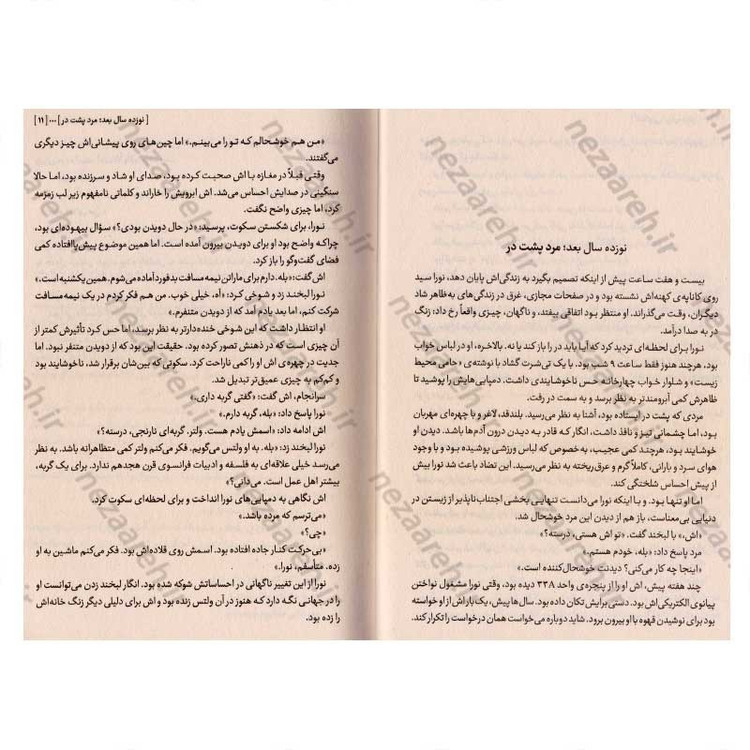 نوزده سال بعد: مرد پشت در
بیست و هفت ساعت پیش از اینکه تصمیم بگیرد به زندگی‌اش پایان دهد، نورا سید
روی کاناپه‌ی کهنه‌اش نشسته بود و در صفحات مجازی، غرق در زندگی‌های به‌ظاهر شاد
دیگران، وقت می‌گذراند. او منتظر بود اتفاقی بیفتد، و ناگهان، چیزی واقعاً رخ داد؛ زنگ
در به صدا درآمد.
نورا برای لحظه‌ای تردید کرد که آیا باید در را باز کند یا نه. بالاخره، او در لباس خواب
بود، هرچند هنوز فقط ساعت ۹ شب بود. با یک تی‌شرت گشاد با نوشته‌ی «حامی محیط
زیست» و شلوار خواب چهارخانه حس ناخوشایندی داشت. دمپایی‌هایش را پوشید تا
ظاهرش کمی آبرومندتر به نظر برسد و به سمت در رفت.
مردی که پشت در ایستاده بود، آشنا به نظر می‌رسید. بلندقد، لاغر و با چهره‌ای مهربان
بود، اما چشمانی تیز و نافذ داشت، انگار که قادر به دیدن درون آدم‌ها باشد. دیدن او
خوشایند بود، هرچند کمی عجیب، به خصوص که لباس ورزشی پوشیده بود و با وجود
هوای سرد و بارانی، کاملاً گرم و عرق‌ریخته به نظر می‌رسید. این تضاد باعث شد نورا بیش
از پیش احساس شلختگی کند.
اما او تنها بود. و با اینکه نورا می‌دانست تنهایی بخشی اجتناب‌ناپذیر از زیستن در
دنیایی بی‌معناست، باز هم از دیدن این مرد خوشحال شد.
«اش.» با لبخند گفت. «تو اش هستی، درسته؟»
مرد پاسخ داد: «بله، خودم هستم.»
«اینجا چه کار می‌کنی؟ دیدنت خوشحال‌کننده است.»
چند هفته پیش، اش او را از پنجره‌ی واحد ۳۳۸ دیده بود، وقتی نورا مشغول نواختن
پیانوی الکتریکی‌اش بود. دستی برایش تکان داده بود. سال‌ها پیش، یک بار اش از او خواسته
بود برای نوشیدن قهوه با او بیرون برود. شاید دوباره می‌خواست همان درخواست را تکرار کند.
[ نوزده سال بعد: مرد پشت در ] ... [ ۱۱ ]
«من هم خوشحالم که تو را می‌بینم.» اما چین‌های روی پیشانی‌اش چیز دیگری
می‌گفتند.
وقتی قبلاً در مغازه با اش صحبت کرده بود، صدای او شاد و سرزنده بود، اما حالا
سنگینی در صدایش احساس می‌شد. اش ابرویش را خاراند و کلماتی نامفهوم زیر لب زمزمه
کرد، اما چیزی واضح نگفت.
نورا، برای شکستن سکوت، پرسید: «در حال دویدن بودی؟» سؤال بیهوده‌ای بود،
چراکه واضح بود او برای دویدن بیرون آمده است. اما همین موضوع پیش‌پاافتاده کمی
فضای گفت‌وگو را باز کرد.
اش گفت: «بله. دارم برای ماراتن نیمه مسافت بدفورد آماده می‌شوم. همین یکشنبه است.»
نورا لبخند زد و شوخی کرد: «آه، خیلی خوب. من هم فکر کردم در یک نیمه مسافت
شرکت کنم، اما بعد یادم آمد که از دویدن متنفرم.»
او انتظار داشت که این شوخی خنده‌دارتر به نظر برسد، اما حس کرد تأثیرش کمتر از
آن چیزی است که در ذهنش تصور کرده بود. حقیقت این بود که از دویدن متنفر نبود. اما
جدیت در چهره‌ی اش او را کمی ناراحت کرد. سکوتی که بین‌شان برقرار شد، ناخوشایند بود
و کم‌کم به چیزی عمیق‌تر تبدیل شد.
سرانجام، اش گفت: «گفتی گربه داری.»
نورا پاسخ داد: «بله، گربه دارم.»
اش ادامه داد: «اسمش یادم هست. ولتر. گربه‌ای نارنجی، درسته؟»
نورا لبخند زد: «بله. به او ولتس می‌گویم. فکر می‌کنم ولتر کمی متظاهرانه باشد. به نظر
می‌رسد خیلی علاقه‌ای به فلسفه و ادبیات فرانسوی قرن هجدهم ندارد. برای یک گربه،
بیشتر اهل عمل است. می‌دانی؟»
اش نگاهی به دمپایی‌های نورا انداخت و برای لحظه‌ای سکوت کرد.
«می‌ترسم که مرده باشد.»
«چی؟»
«بی‌حرکت کنار جاده افتاده بود. اسمش روی قلاده‌اش بود. فکر می‌کنم ماشین به او
زده. متأسفم، نورا.»
نورا از این تغییر ناگهانی در احساساتش شوکه شده بود. انگار لبخند زدن می‌توانست او
را در جهانی نگه دارد که هنوز در آن ولتس زنده بود و اش برای دلیلی دیگر زنگ خانه‌اش
را زده بود.
nezaareh.ir